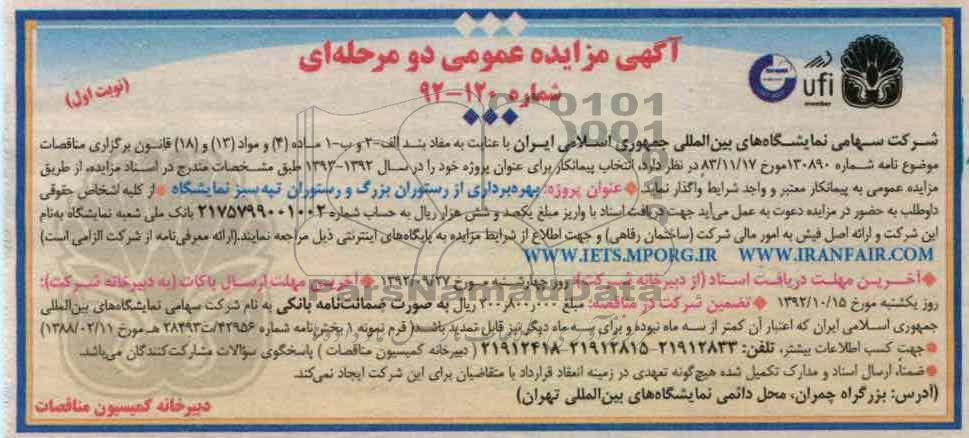 آگهی مزایده عمومی دو مرحله‌ای
شماره ۱۲۰-۹۲
(نوبت اول)
ufi
member
شرکت سهامی نمایشگاه‌های بین‌المللی جمهوری اسلامی ایران با عنایت به مفاد بند الف-۲ و ب-۱ ماده (۴) و مواد (۱۳) و (۱۸) قانون برگزاری مناقصات
موضوع نامه شماره ۱۳۰۸۹۰ مورخ ۸۳/۱۱/۱۷ در نظر دارد، انتخاب پیمانکار برای عنوان پروژه خود را در سال ۱۳۹۲-۱۳۹۳ طبق مشخصات مندرج در اسناد مزایده، از طریق
مزایده عمومی به پیمانکار معتبر و واجد شرایط واگذار نماید. عنوان پروژه: بهره‌برداری از رستوران بزرگ و رستوران تپه سبز نمایشگاه از کلیه اشخاص حقوقی
داوطلب به حضور در مزایده دعوت به عمل می‌آید جهت دریافت اسناد با واریز مبلغ یکصد و شش هزار ریال به حساب شماره ۲۱۷۵۷۹۹۰۰۱۰۰۲ بانک ملی شعبه نمایشگاه به‌نام
این شرکت و ارائه اصل فیش به امور مالی شرکت (ساختمان رفاهی) و جهت اطلاع از شرایط مزایده به پایگاه‌های اینترنتی ذیل مراجعه نمایند.(ارائه معرفی‌نامه از شرکت الزامی است)
WWW.IETS.MPORG.IR WWW.IRANFAIR.COM
آخرین مهلت دریافت اسناد (از دبیرخانه شرکت): روز چهارشنبه مورخ ۱۳۹۲/۰۹/۲۷ آخرین مهلت ارسال پاکات (به دبیرخانه شرکت):
روز یکشنبه مورخ ۱۳۹۲/۱۰/۱۵ تضمین شرکت در مناقصه: مبلغ ۳۰۰٫۸۰۰٫۰۰۰ ریال به صورت ضمانت‌نامه بانکی به نام شرکت سهامی نمایشگاه‌های بین‌المللی
جمهوری اسلامی ایران که اعتبار آن کمتر از سه ماه نبوده و برای سه ماه دیگر نیز قابل تمدید باشد( فرم نمونه ۱ بخش‌نامه شماره ۴۲۹۵۶/ت۲۸۴۹۳ هـ مورخ ۱۳۸۸/۰۲/۱۱)
جهت کسب اطلاعات بیشتر، تلفن: ۲۱۹۱۲۸۳۳-۲۱۹۱۲۸۱۵-۲۱۹۱۲۴۱۸ ( دبیرخانه کمیسیون مناقصات ) پاسخگوی سؤالات مشارکت‌کنندگان می‌باشد.
ضمناً، ارسال اسناد و مدارک تکمیل شده هیچ‌گونه تعهدی در زمینه انعقاد قرارداد با متقاضیان برای این شرکت ایجاد نمی‌کند.
(آدرس: بزرگراه چمران، محل دائمی نمایشگاه‌های بین‌المللی تهران)
دبیرخانه کمیسیون مناقصات